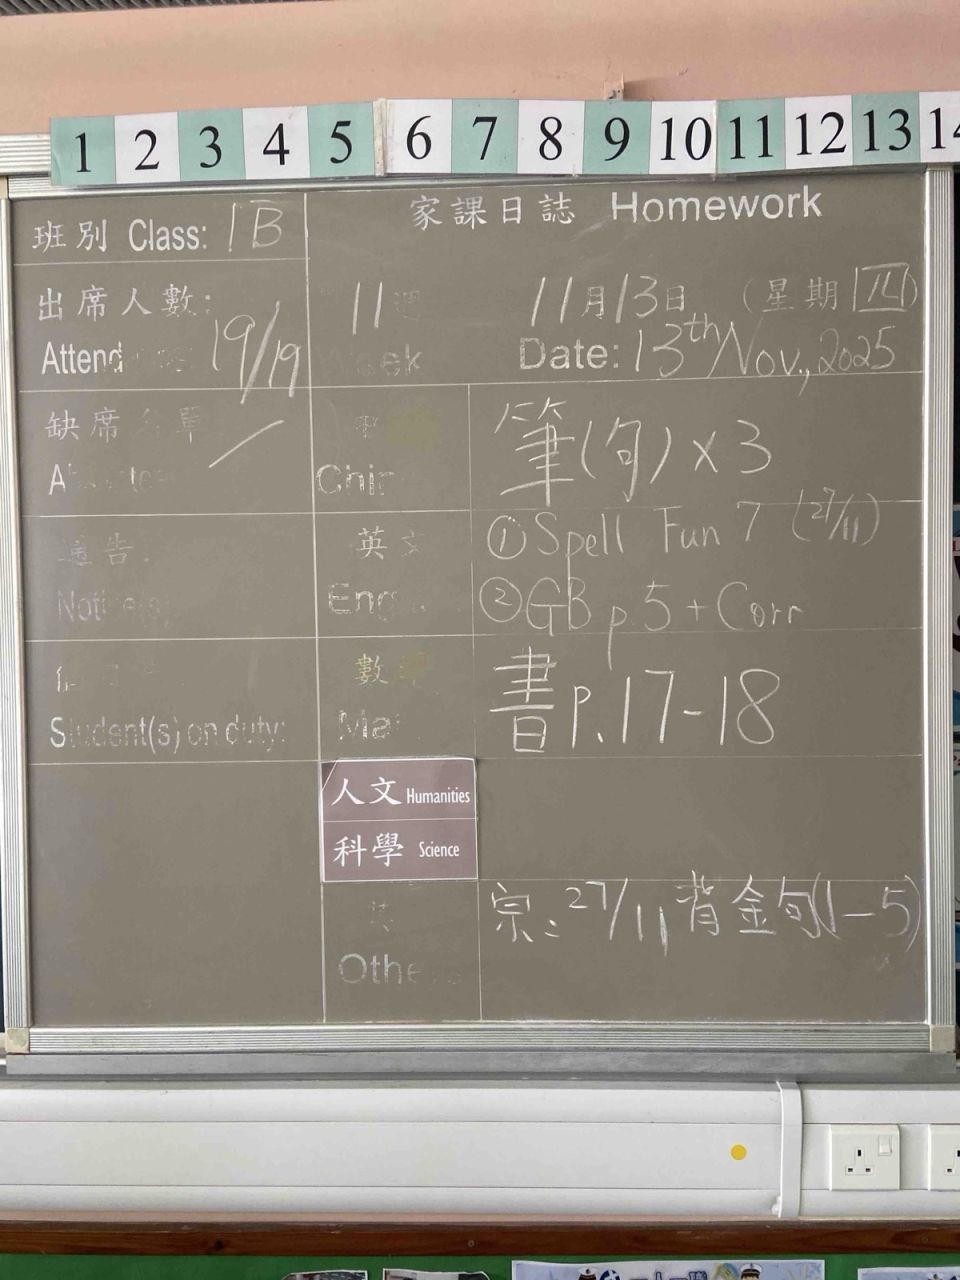 1 2 3 4 5 6 7 8 9 10 11 12 13 14
家課日誌 Homework
班別 Class: 1B
出席人數:
Attend 19/19
11週
eek
11月13日 (星期四)
Date: 13th Nov., 2025
缺席名單
/
Chin
筆(句)x3
通告:
Notice(s)
英文
Eng
①Spell Fun 7 (27/11)
②GB p.5+Corr
Student(s) on duty:
數
Ma
書p.17-18
人文 Humanities
科學 Science
其
Othe
宗: 27/11 背金句(1-5)